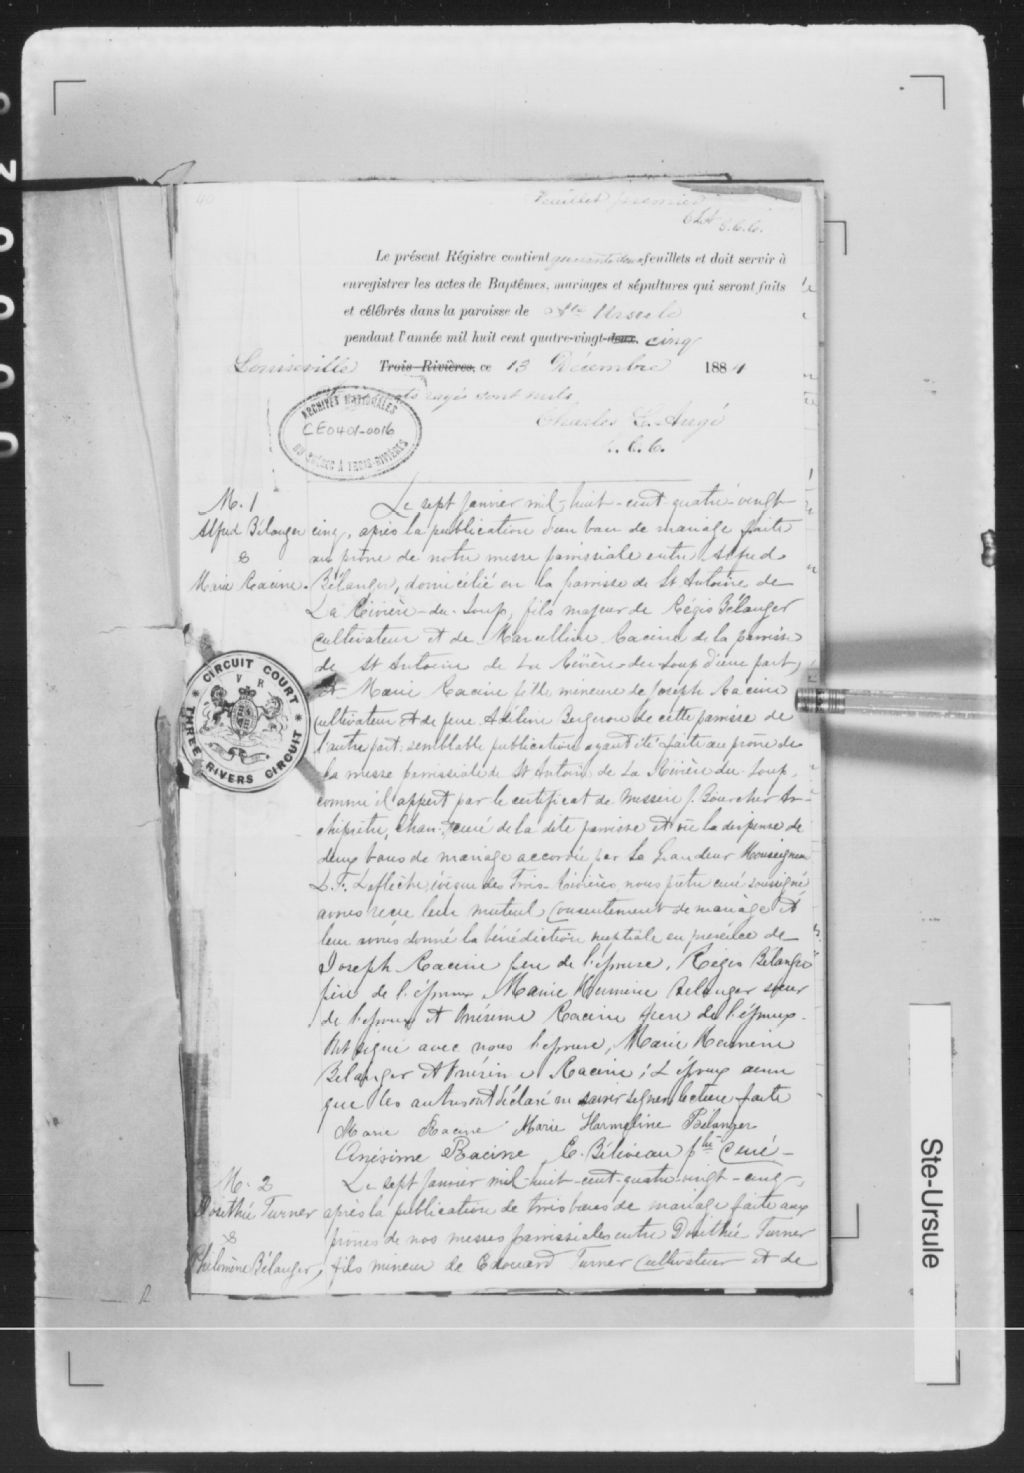 Feuillet premier
C.C.C.
Le présent Régistre contient quarante deux feuillets et doit servir à
enregistrer les actes de Baptêmes, mariages et sépultures qui seront faits
et célébrés dans la paroisse de Ste Ursule
pendant l'année mil huit cent quatre-vingt-deux, cinq
Louiseville Trois-Rivières, ce 13 Décembre 1884
rayés sont nuls
Charles L. Augé
C.C.C.
ARCHIVES NATIONALES
CE0401-0016
DU QUÉBEC À TROIS-RIVIÈRES
M. 1
Alfred Bélanger
&
Marie Racine.
Le sept Janvier mil-huit-cent-quatre-vingt
cinq, après la publication d'un ban de mariage faite
au prône de notre messe paroissiale entre Alfred
Bélanger, domicilié en la paroisse de St Antoine de
La Rivière-du-Loup, fils majeur de Régis Bélanger
cultivateur et de Marcelline Racine de la paroisse
de St Antoine de La Rivière-du-Loup d'une part,
et Marie Racine fille mineure de Joseph Racine
cultivateur et de feue Adéline Bergeron de cette paroisse de
l'autre part; semblable publication ayant été faite au prône de
la messe paroissiale de St Antoine de La Rivière du Loup,
comme il appert par le certificat de Messire J. Boucher Ar-
chiprêtre, Chan. curé de la dite paroisse et vu la dispense de
deux bans de mariage accordée par Sa Grandeur Monseigneur
L. F. Laflèche, évêque des Trois-Rivières, nous prêtre curé soussigné
avons reçu leur mutuel consentement de mariage et
leur avons donné la bénédiction nuptiale en présence de
Joseph Racine père de l'épouse, Régis Bélanger
père de l'époux Marie Bélanger sœur
de l'époux et Racine de l'épouse.
Ont signé avec nous l'épouse, Marie
Bélanger et Racine; L'époux ainsi
que les autres ont déclaré ne savoir signer lecture faite
Marie Racine Marie Harmeline Bélanger
Onésime Racine E. Béliveau ptre Curé
CIRCUIT COURT
V R
THREE RIVERS CIRCUIT
M. 2
Dosithée Turner
&
Philomène Bélanger,
Le sept Janvier mil-huit-cent-quatre-vingt-cinq,
après la publication de trois bans de mariage faite aux
prônes de nos messes paroissiales entre Dosithée Turner
fils mineur de Edouard Turner cultivateur et de
Ste-Ursule